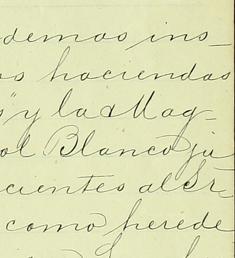 demas ins-
as haciendas
s" y la Mag-
ol Blanco ju
cientes al Sr-
como herede